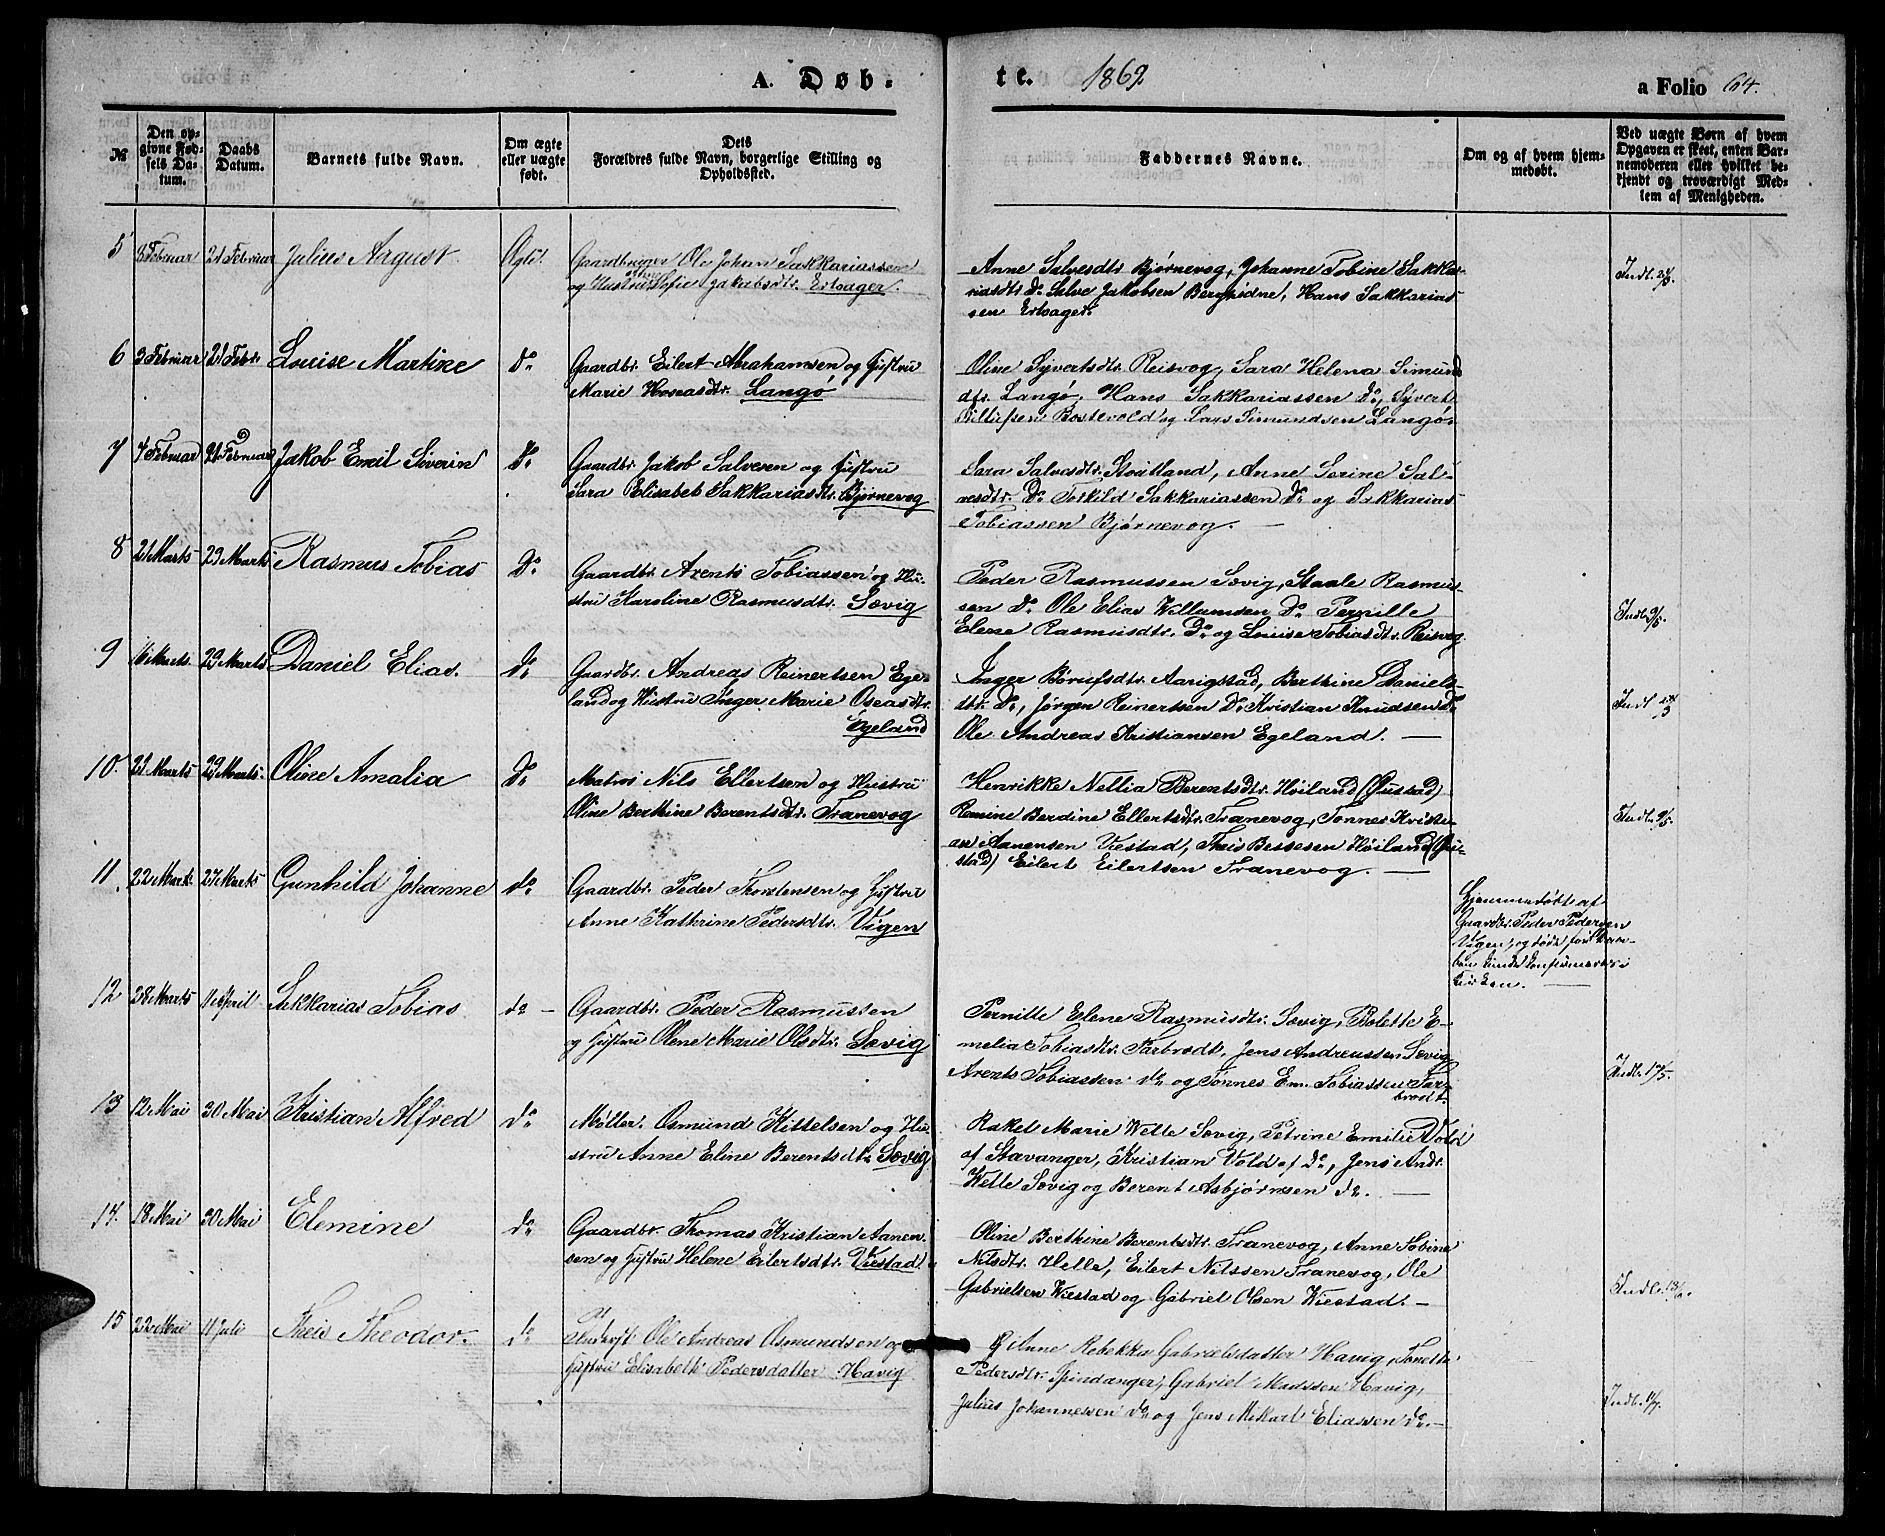 A. Døb-
te. 1862
a Folio 64.
№
Den op-
givne Fød-
sels Da-
tum.
Daabs
Datum.
Barnets fulde Navn.
Om ægte
eller uægte
født.
Dets
Forældres fulde Navn, borgerlige Stilling og
Opholdssted.
Faddernes Navne.
Om og af hvem hjem-
medøbt.
Ved uægte Børn af hvem
Opgaven er skeet, enten Bar-
nemoderen eller hvilket be-
kjendt og troværdigt Med-
lem af Menigheden.
5 8 Februar 21 Februar Julius August Ægte
Gaardbruger Ole Johan Sakkariassen
og Hustru Sofie Jakobsdtr. Ertvager.
Anne Salvesdtr Bjørnevog, Johanne Tobine Sakka-
riasdtr Do Salve Jakobsen Bergsidne, Hans Sakkarias-
sen Ertvager.
Indl.
6 3 Februar 21 Febr. Louise Martine do
Gaardbr. Eilert Abrahamsen og Hustru
Marie Hoseasdtr. Langø
Oline Syvertsdtr. Reisvog, Sara Helena Simund
dtr. Langø, Hans Sakkariassen do, Syvert
Bostevold og Lars Simundsen Langø.
7 7 Februar 21 Februar Jakob Emil Severin do
Gaardbr. Jakob Salvesen og Hustru
Sara Elisabet Sakkariasdtr. Bjørnevog
Sara Salvesdtr. Stoitland, Anne Serine Sal-
vesdtr. Do Torkild Sakkariassen do og Sakkarias
Tobiassen Bjørnevog.
8 21 Marts 29 Marts Rasmus Tobias Do
Gaardbr. Arents Tobiassen og Hu-
stru Karoline Rasmusdtr. Sævig
Peder Rasmussen Sævig, Staale Rasmus-
sen do Ole Elias Willumsen Do Pernille
Elene Rasmusdtr. Do og Louise Tobiasdtr. Reisvog
Indl. 9/5.
9 16 Marts 29 Marts Daniel Elias. do
Gaardbr. Andreas Reinertsen Ege-
land og Hustru Inger Marie Oseasdtr.
Egeland
Inger Børufsdtr. Aarigstad, Berthine Daniels-
dtr. do, Jørgen Reinertsen Do Kristian Knudsen Do
Ole Andreas Kristiansen Egeland.
Indl
10. 21 Marts 29 Marts. Oline Amalia do
Matros Nils Ellertsen og Hustru
Oline Berthine Berentsdtr. Tranevog
Henrikke Nellia Berentsdtr. Høiland (Øustad)
Ramine Berdine Ellertsdtr. Tranevog, Tønnes Kristi-
an Aanensen Viestad, Theis Bessesen Høiland (Øu-
stad) Eilert Eilertsen Tranevog.
Indl. 9/5.
11. 22 Mart. 27 Marts Gunhild Johanne do
Gaardbr. Peder Thorstensen og Hustru
Anne Kathrine Pedersdtr. Vigen
Hjemmedøbt af
Gaardbr. Peder Pedersen
Vigen, og døde før Daa-
ben kunde konfirmeres i
Kirken.
12 28 Marts 11 April Sakkarias Tobias do
Gaardbr. Peder Rasmussen
og Hustru Olene Marie Olsdtr. Sævig
Pernille Elene Rasmusdtr. Sævig, Bolette E-
melia Tobiasdtr. Farbrodt, Jens Andreassen Sævig
Arents Tobiassen do og Tønnes Em. Tobiassen Far-
brodt.
Indl. 17/5.
13 12 Mai 30 Mai Kristian Alfred do
Møller. Osmund Kittelsen og Hu-
stru Anne Eline Berentsdtr Sævig
Rakel Marie Welle Sævig, Petrine Emilie Vold
af Stavanger, Kristian Vold af Do, Jens Andr.
Welle Sævig og Berent Asbjørnsen do.
14. 18 Mai 30 Mai Elemine do
Gaardbr. Thomas Kristian Aanen-
sen og Hustru Helene Eilertsdtr. Viestad
Oline Berthine Berentsdtr. Tranevog, Anne Tobine
Nilsdtr. Helle, Eilert Nilssen Tranevog, Ole
Gabrielsen Wiestad og Gabriel Olsen Wiestad.
Indl.
15 22 Mai 11 Juli Theis Theodor. do
Ole Andreas Osmundsen og
Hustru Elisabeth Pedersdatter Havig
Anne Rebekka Gabrielsdatter Havig, Tonette
Pedersdtr. Spindanger, Gabriel Madssen Havig,
Julius Johannessen do og Jens Mikael Eliassen do.
Indl. 11/7.